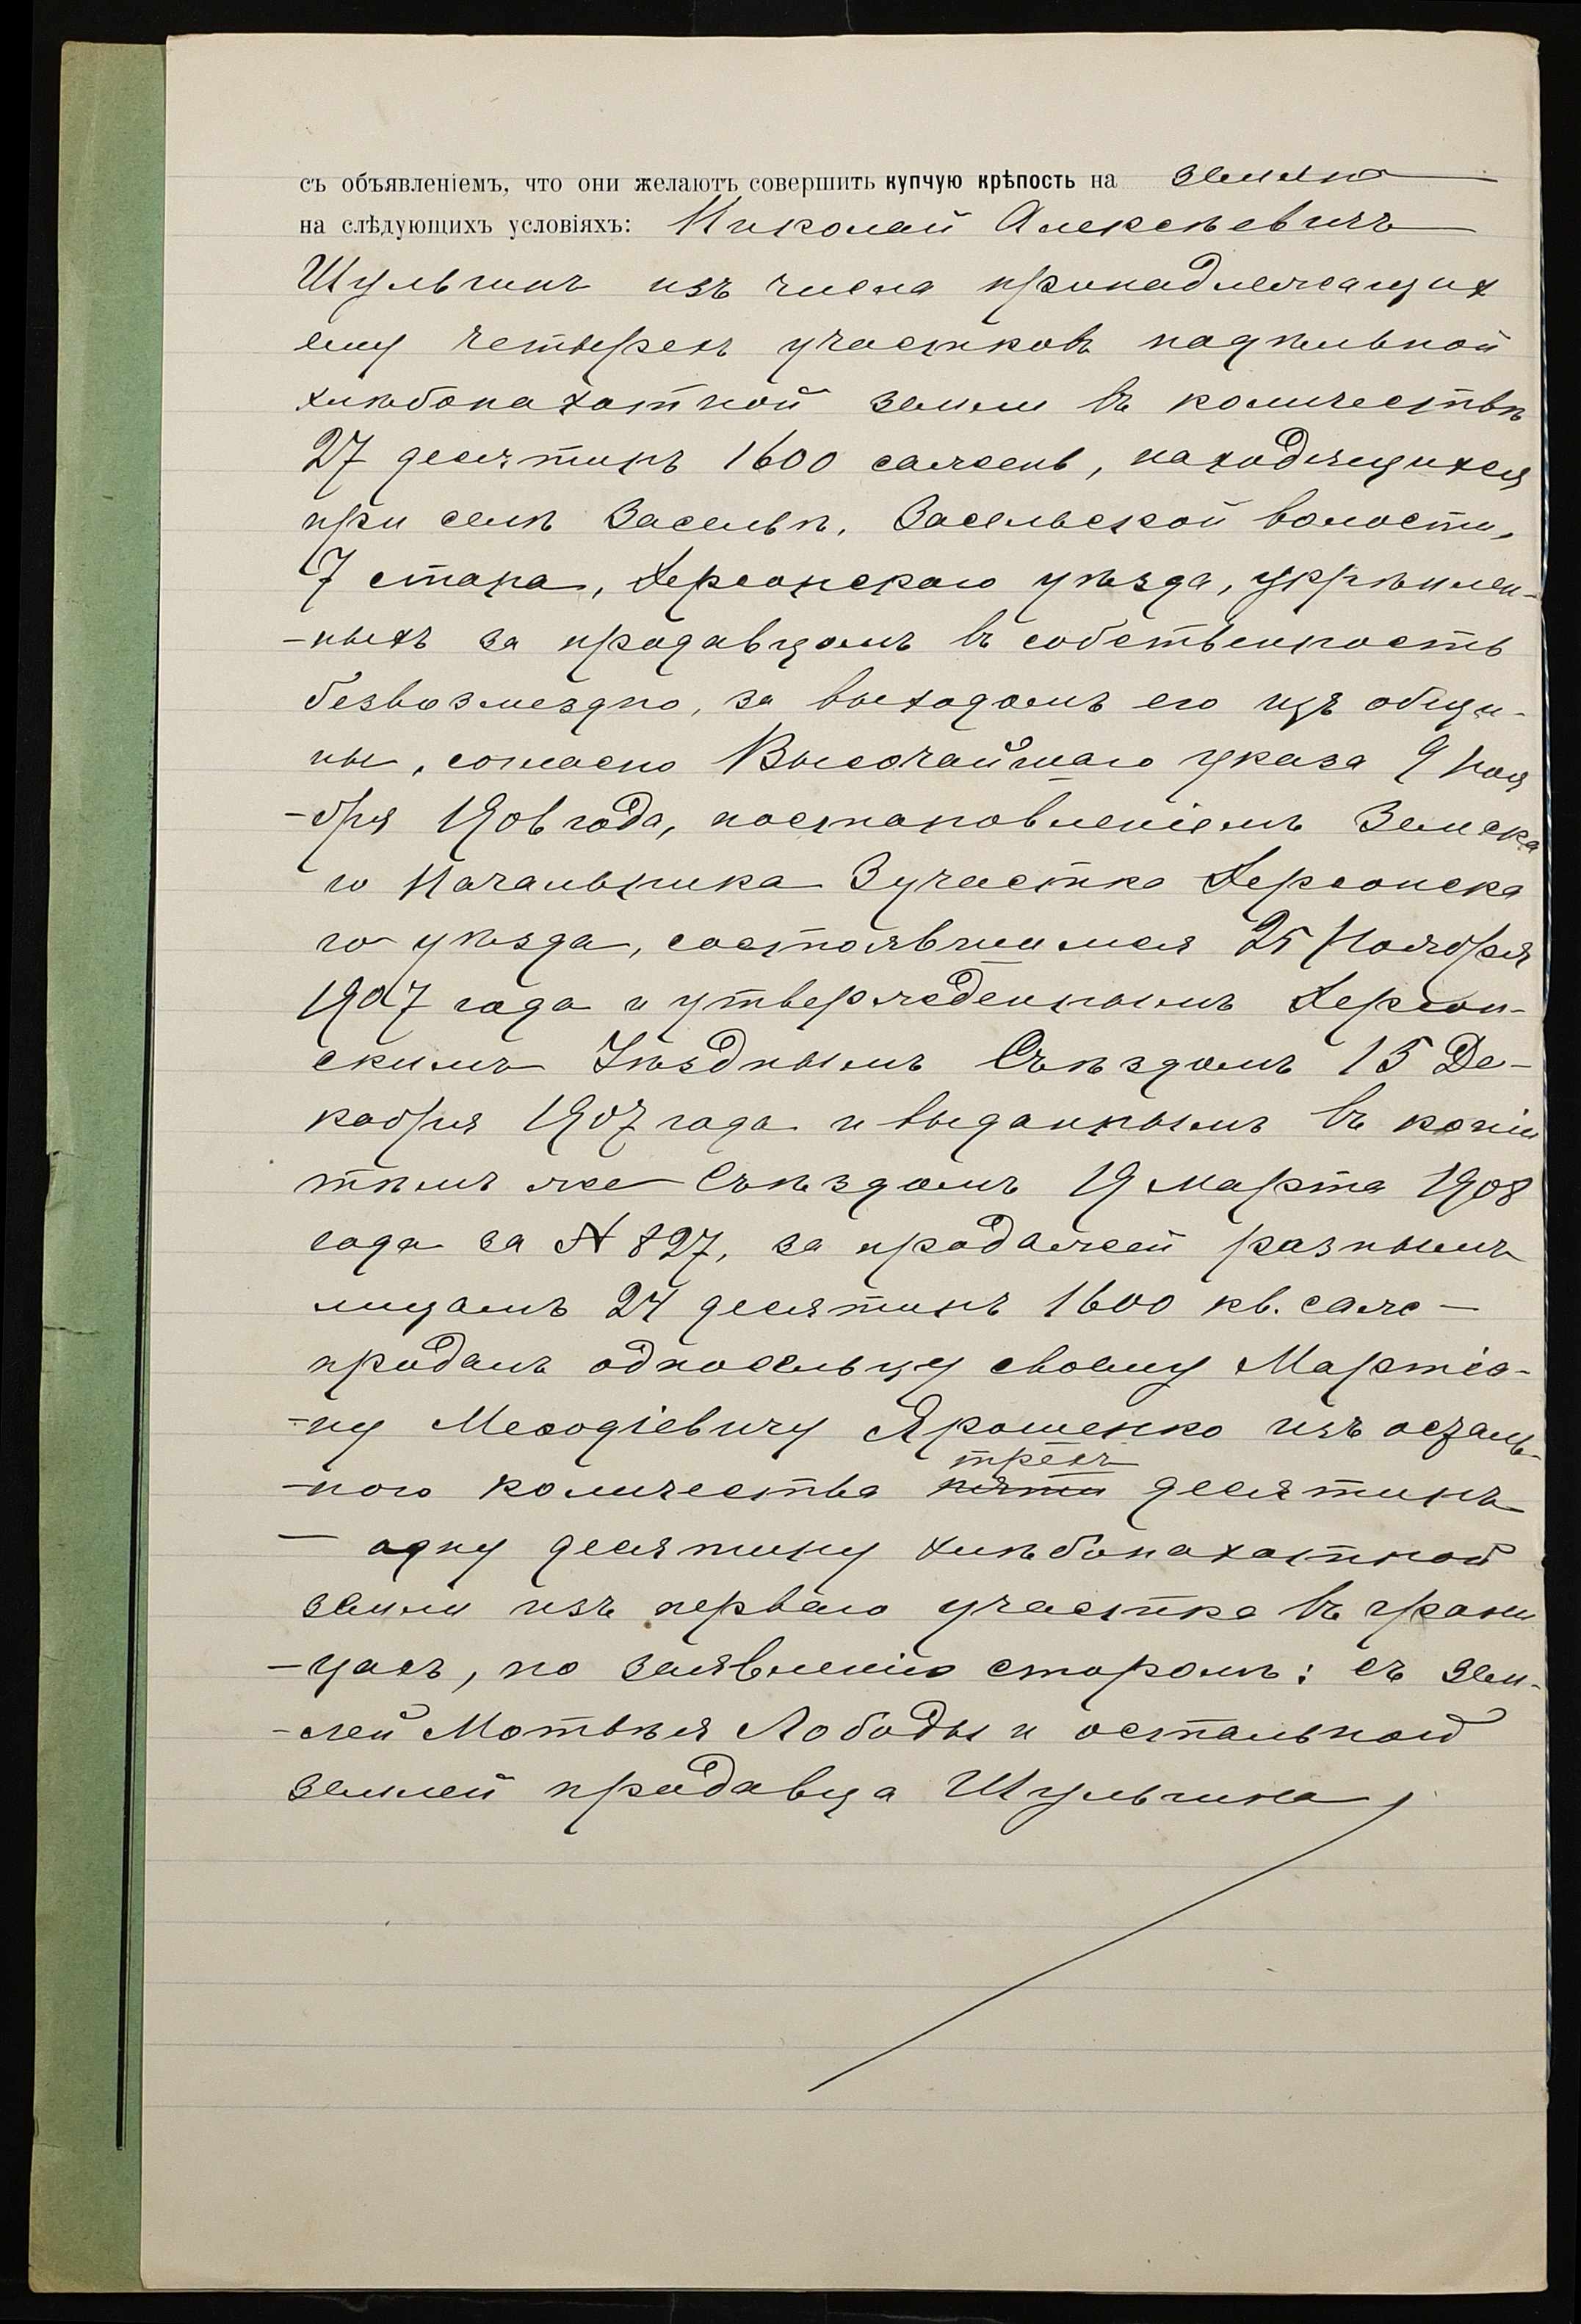 съ объявленіемъ, что они желаютъ совершить купчую крѣпость на землю
на слѣдующихъ условіяхъ: Николай Алексѣевичъ
Шульгинъ изъ числа принадлежащих
ему четырехъ участковъ надѣльной
хлѣбопахотной земли въ количествѣ
27 десятинъ 1600 сажень, находящихся
при селѣ Засельѣ, Засельской волости,
7 стана, Херсонскаго уѣзда, укрѣплен-
-ныхъ за продавцомъ въ собственность
безвозмездно, за выходомъ его изъ общи-
ны, согласно Высочайшаго указа 9 Ноя
-бря 1906 года, постановленіемъ Земска
го Начальника 3 участка Херсонска
го уѣзда, состоявшимся 25 Ноября
1907 года и утвержденнымъ Херсон-
скимъ Уѣзднымъ Съѣздомъ 15 Де-
кабря 1907 года и выданнымъ въ копіи
тѣмъ же Съѣздомъ 19 Марта 1908
года за № 827, за продажей разнымъ
лицамъ 24 десятинъ 1600 кв. саж
продалъ односельцу своему Мартіа-
-ну Меѳодіевичу Ярошенко изъ осталь-
трехъ
-ного количества пяти десятинъ
одну десятину хлѣбопахотной
земли изъ перваго участка въ грани
-цахъ, по заявленію сторонъ: съ зем-
-лей Мотвѣя Лободы и остальной
землей продавца Шульгина,